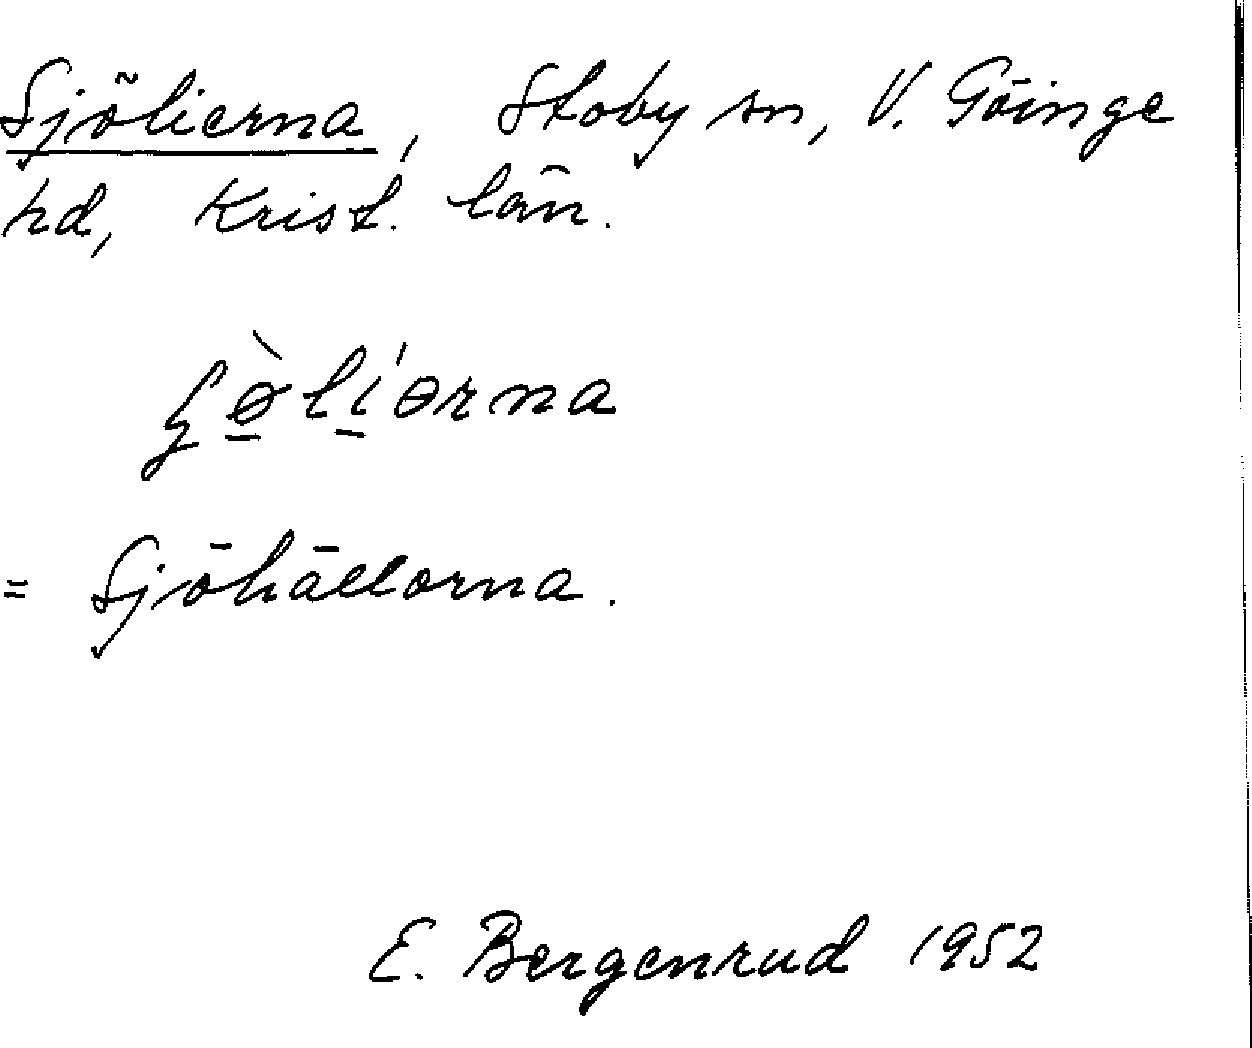 Sjölierna, Stoby sn, V. Göinge
hd, Krist. län.
ʂø̀li´ɵrna
= Sjöhällorna.
E. Bergenrud 1952